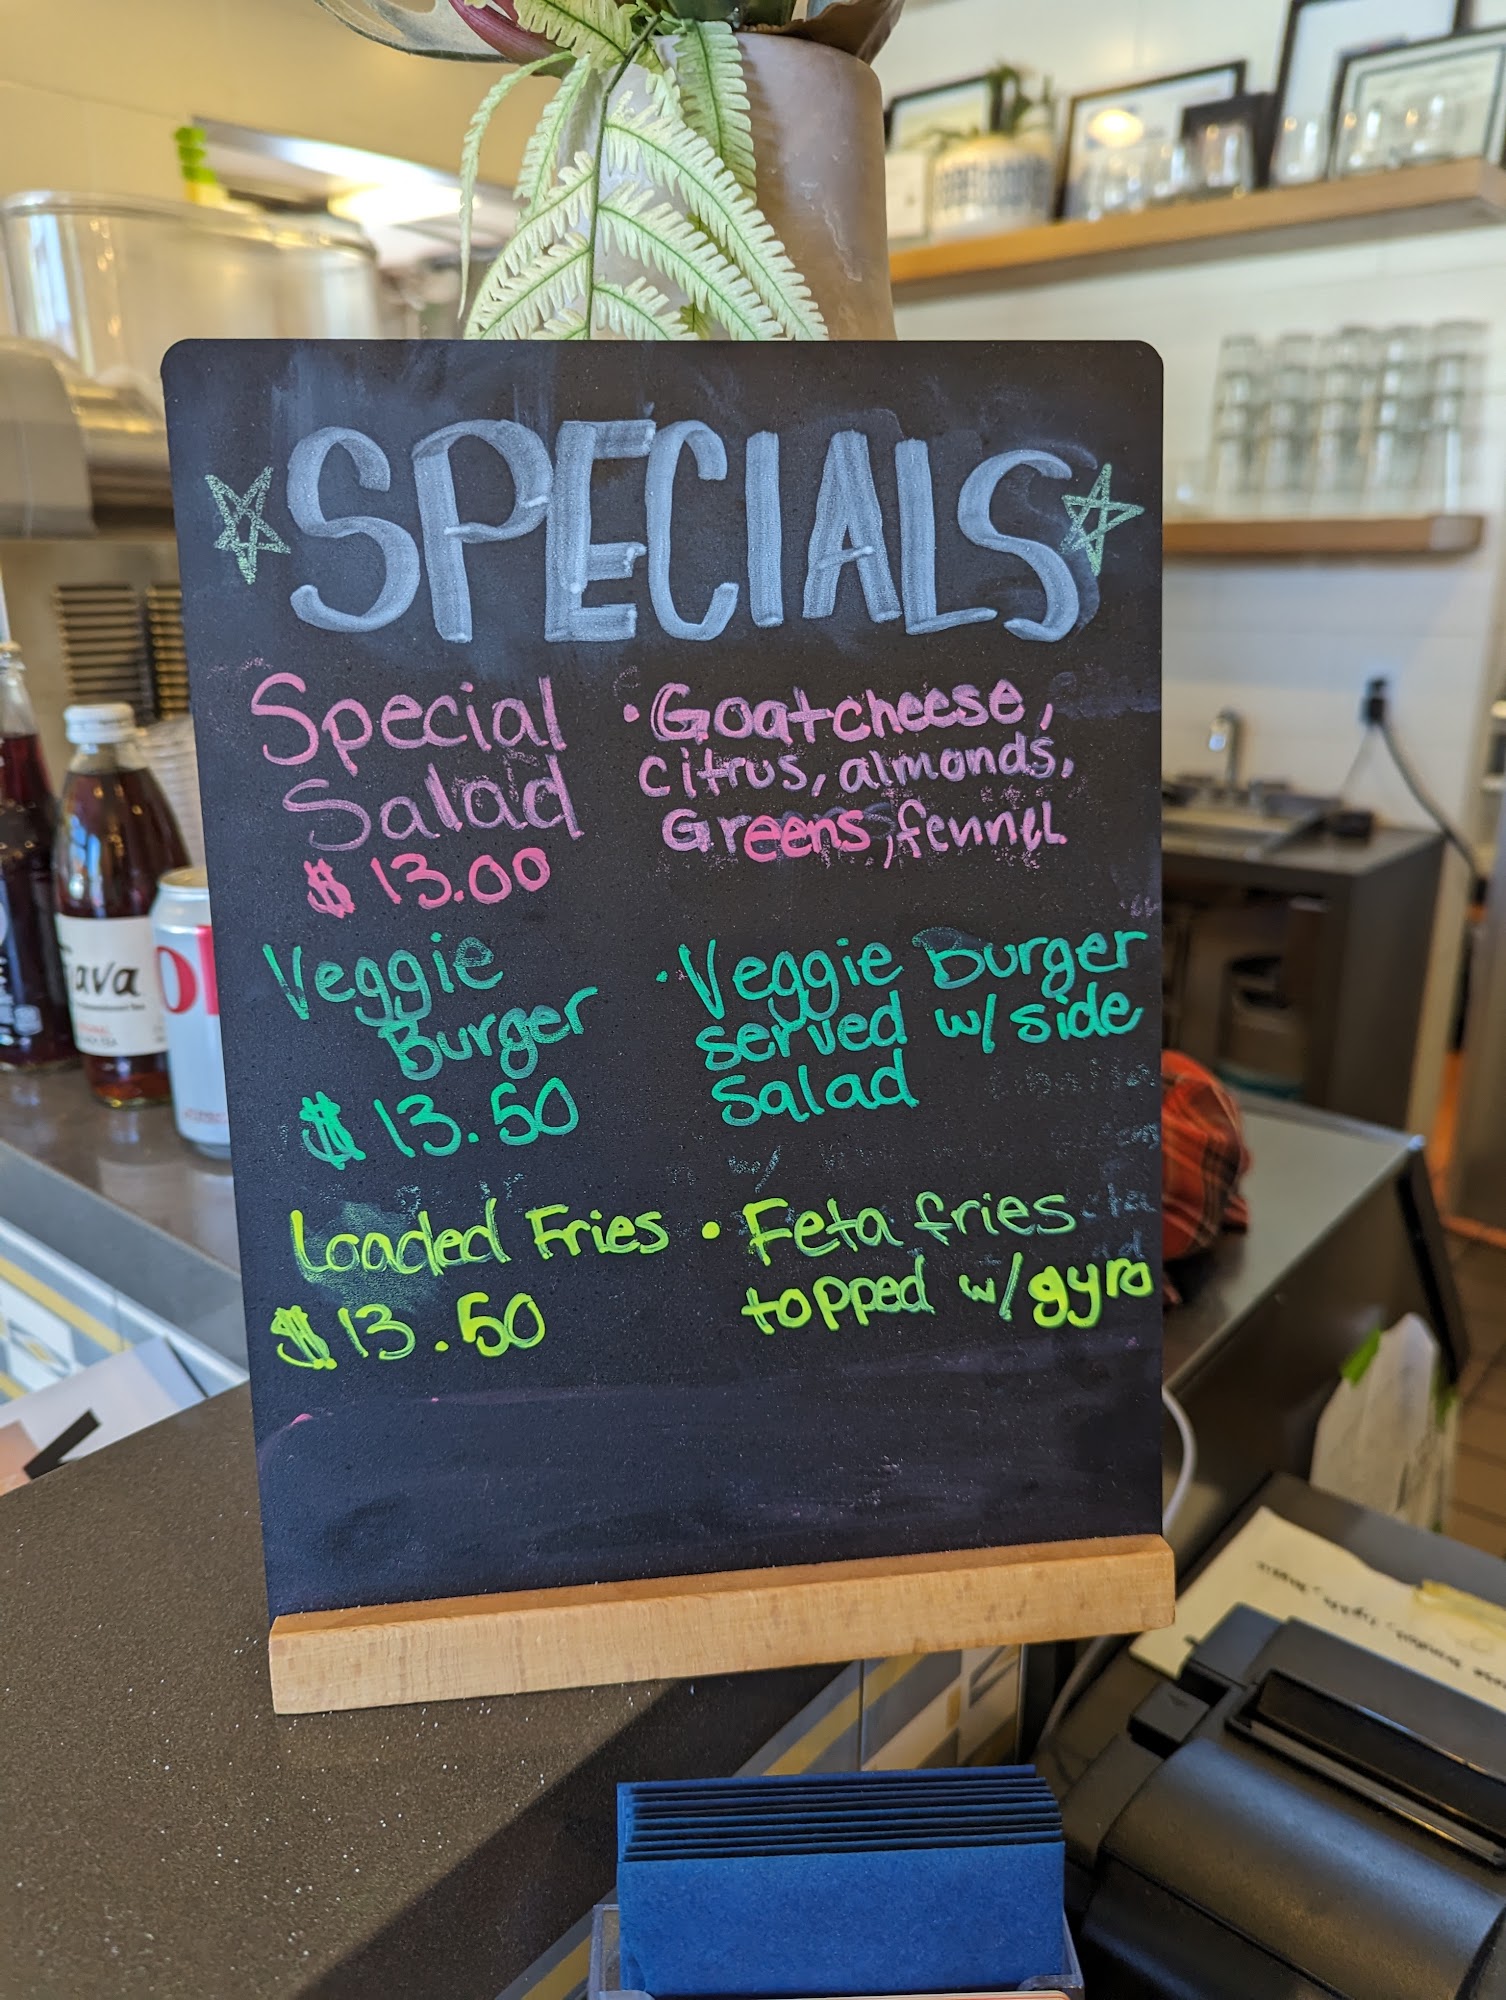 SPECIALS
Special
Salad
$13.00
• Goat cheese,
citrus, almonds,
Greens, fennel
Veggie
Burger
$13.50
• Veggie Burger
served w/ side
Salad
Loaded Fries
$13.50
• Feta fries
topped w/ gyro